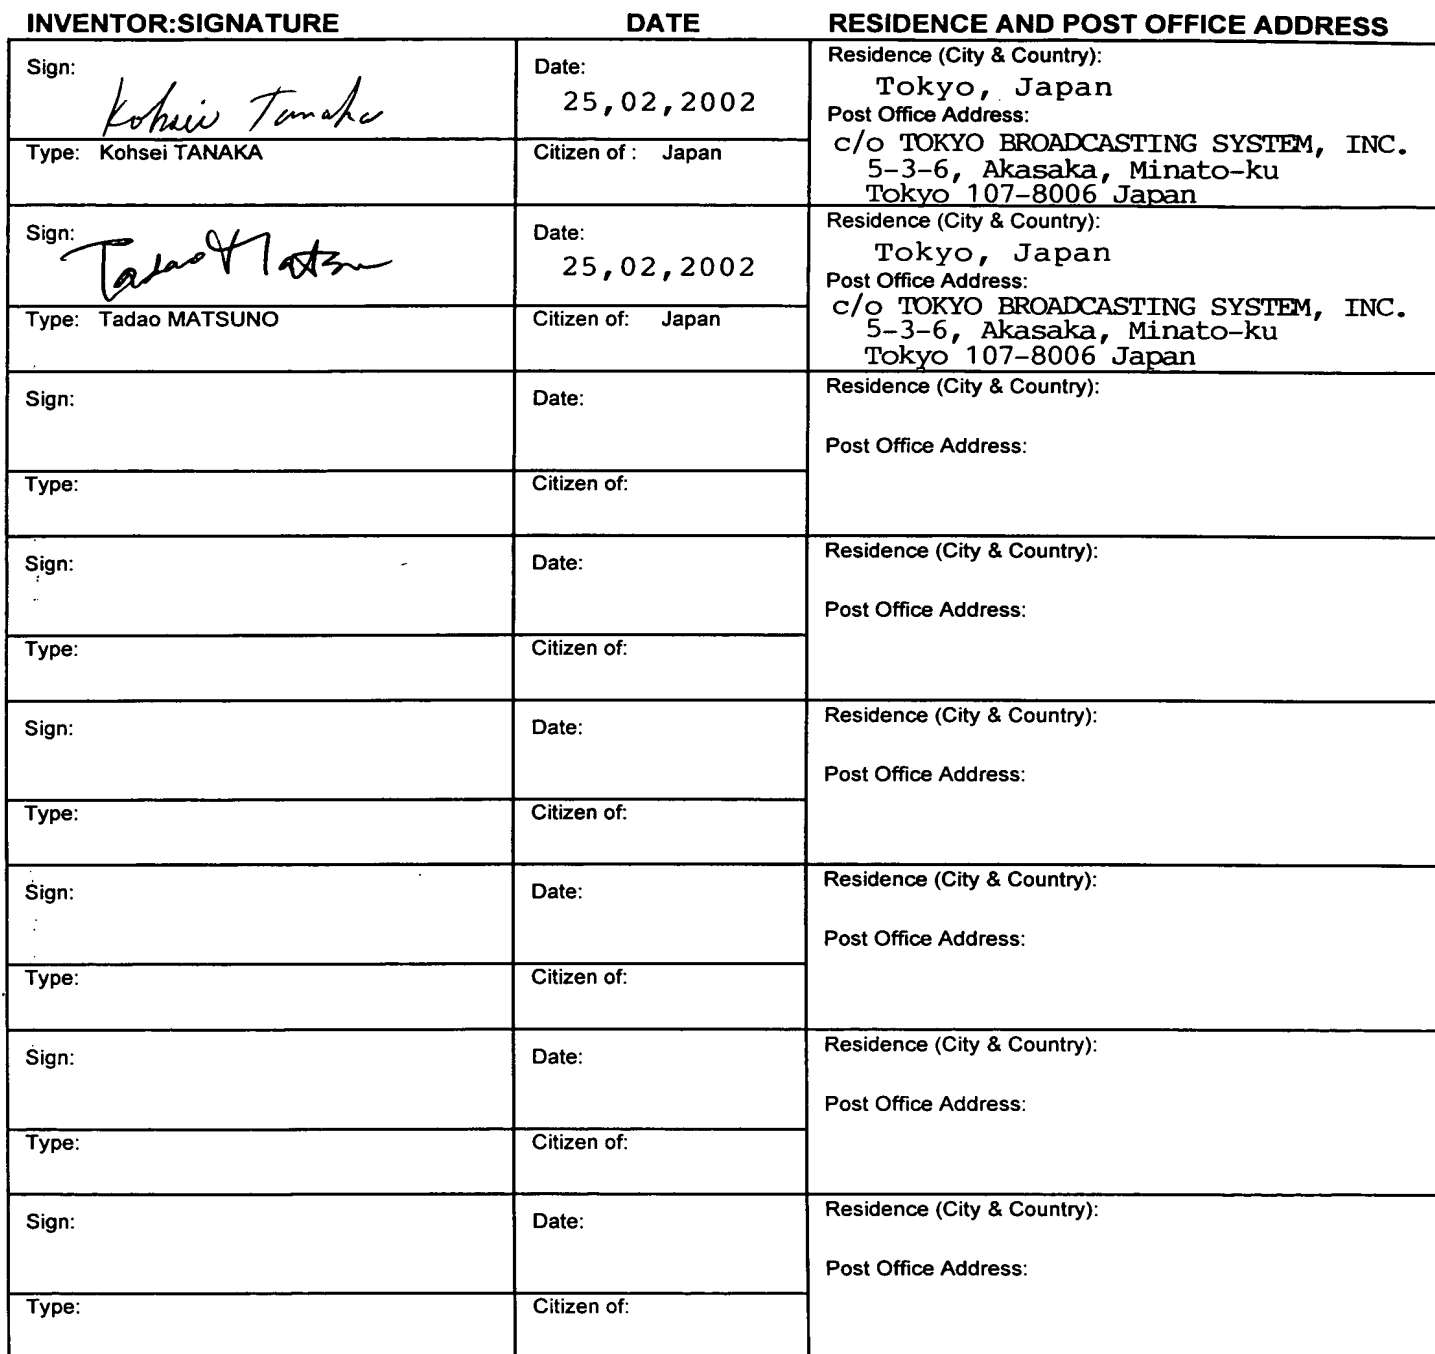 INVENTOR:SIGNATURE DATE RESIDENCE AND POST OFFICE ADDRESS
Sign: Kohsei Tanaka
Date:
25,02,2002
Residence (City & Country):
Tokyo, Japan
Post Office Address:
c/o TOKYO BROADCASTING SYSTEM, INC.
5-3-6, Akasaka, Minato-ku
Tokyo 107-8006 Japan
Type: Kohsei TANAKA
Citizen of : Japan
Sign: Tadao Matsuno
Date:
25,02,2002
Residence (City & Country):
Tokyo, Japan
Post Office Address:
c/o TOKYO BROADCASTING SYSTEM, INC.
5-3-6, Akasaka, Minato-ku
Tokyo 107-8006 Japan
Type: Tadao MATSUNO
Citizen of: Japan
Sign:
Date:
Residence (City & Country):
Post Office Address:
Type:
Citizen of:
Sign:
Date:
Residence (City & Country):
Post Office Address:
Type:
Citizen of:
Sign:
Date:
Residence (City & Country):
Post Office Address:
Type:
Citizen of:
Sign:
Date:
Residence (City & Country):
Post Office Address:
Type:
Citizen of:
Sign:
Date:
Residence (City & Country):
Post Office Address:
Type:
Citizen of:
Sign:
Date:
Residence (City & Country):
Post Office Address:
Type:
Citizen of: